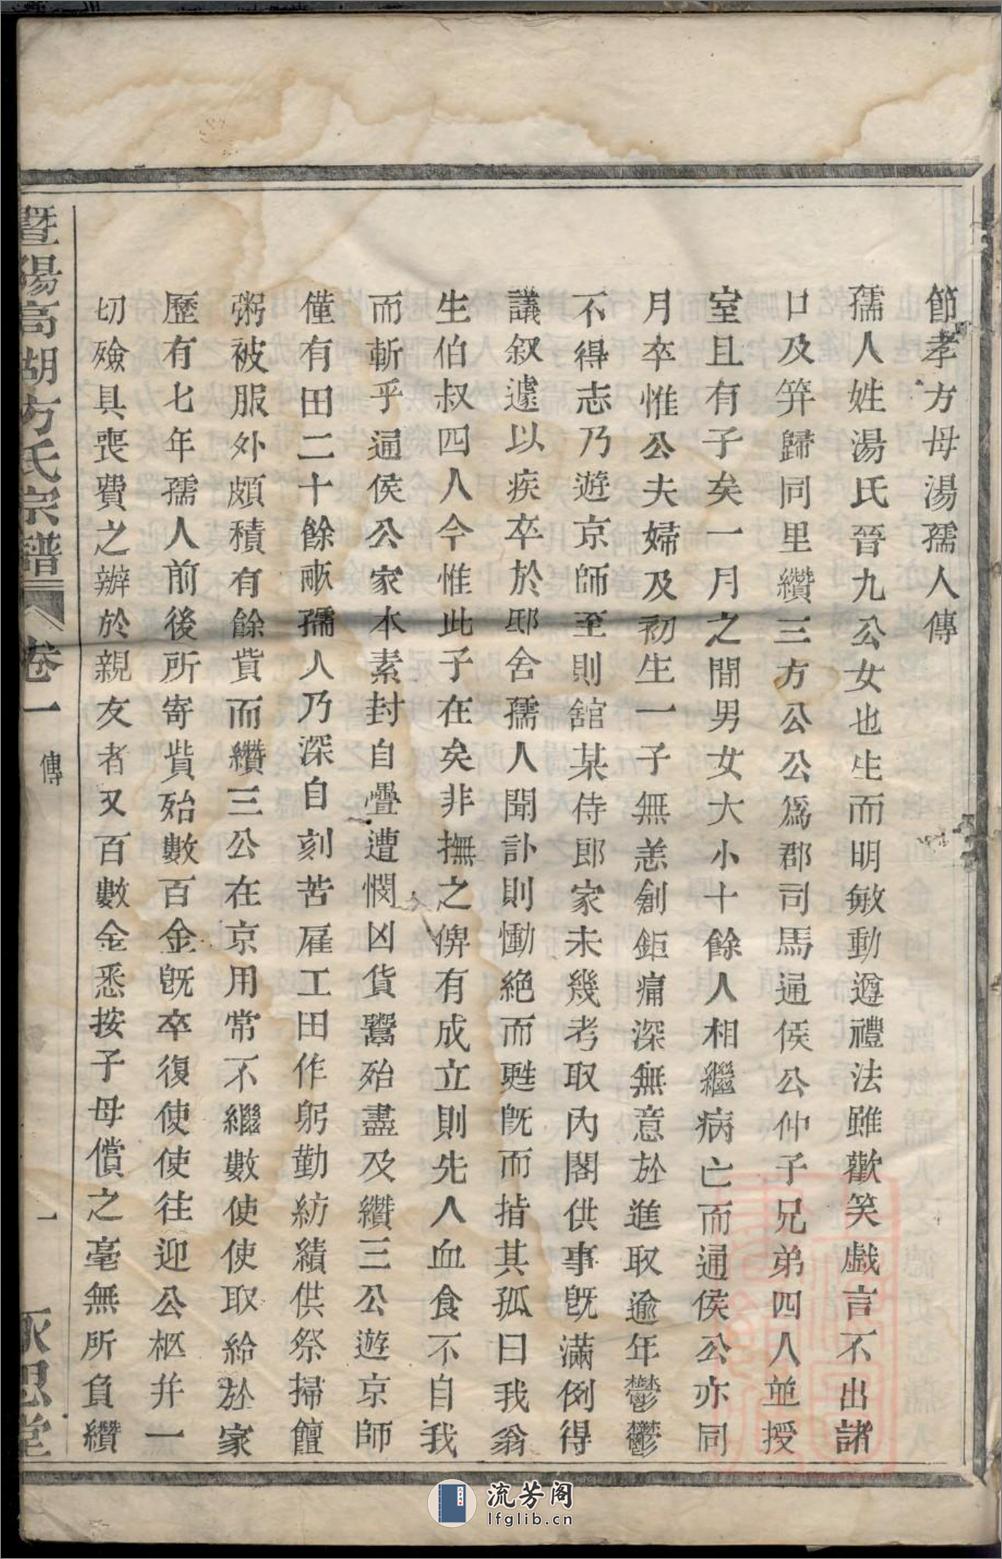 節孝方母湯孺人傳
孺人姓湯氏晉九公女也生而明敏動遵禮法雖歡笑戲言不出諸
口及笄歸同里纘三方公公爲郡司馬通侯公仲子兄弟四人並授
室且有子矣一月之間男女大小十餘人相繼病亡而通侯公亦同
月卒惟公夫婦及初生一子無恙創鉅痛深無意於進取逾年鬱鬱
不得志乃遊京師至則舘某侍郎家未幾考取內閣供事旣滿例得
議叙遽以疾卒於邸舍孺人聞訃則慟絕而甦旣而指其孤曰我翁
生伯叔四人今惟此子在矣非撫之俾有成立則先人血食不自我
而斬乎通侯公家本素封自疊遭憫凶貨鬻殆盡及纘三公遊京師
僅有田二十餘畝孺人乃深自刻苦雇工田作躬勤紡績供祭掃饘
粥被服外頗積有餘貲而纘三公在京用常不繼數使使取給於家
歷有七年孺人前後所寄貲殆數百金旣卒復使使往迎公柩并一
切殮具喪費之辦於親友者又百數金悉按子母償之毫無所負纘
暨陽高湖方氏宗譜 卷一 傳 一 永思堂
流芳阁
lfglib.cn